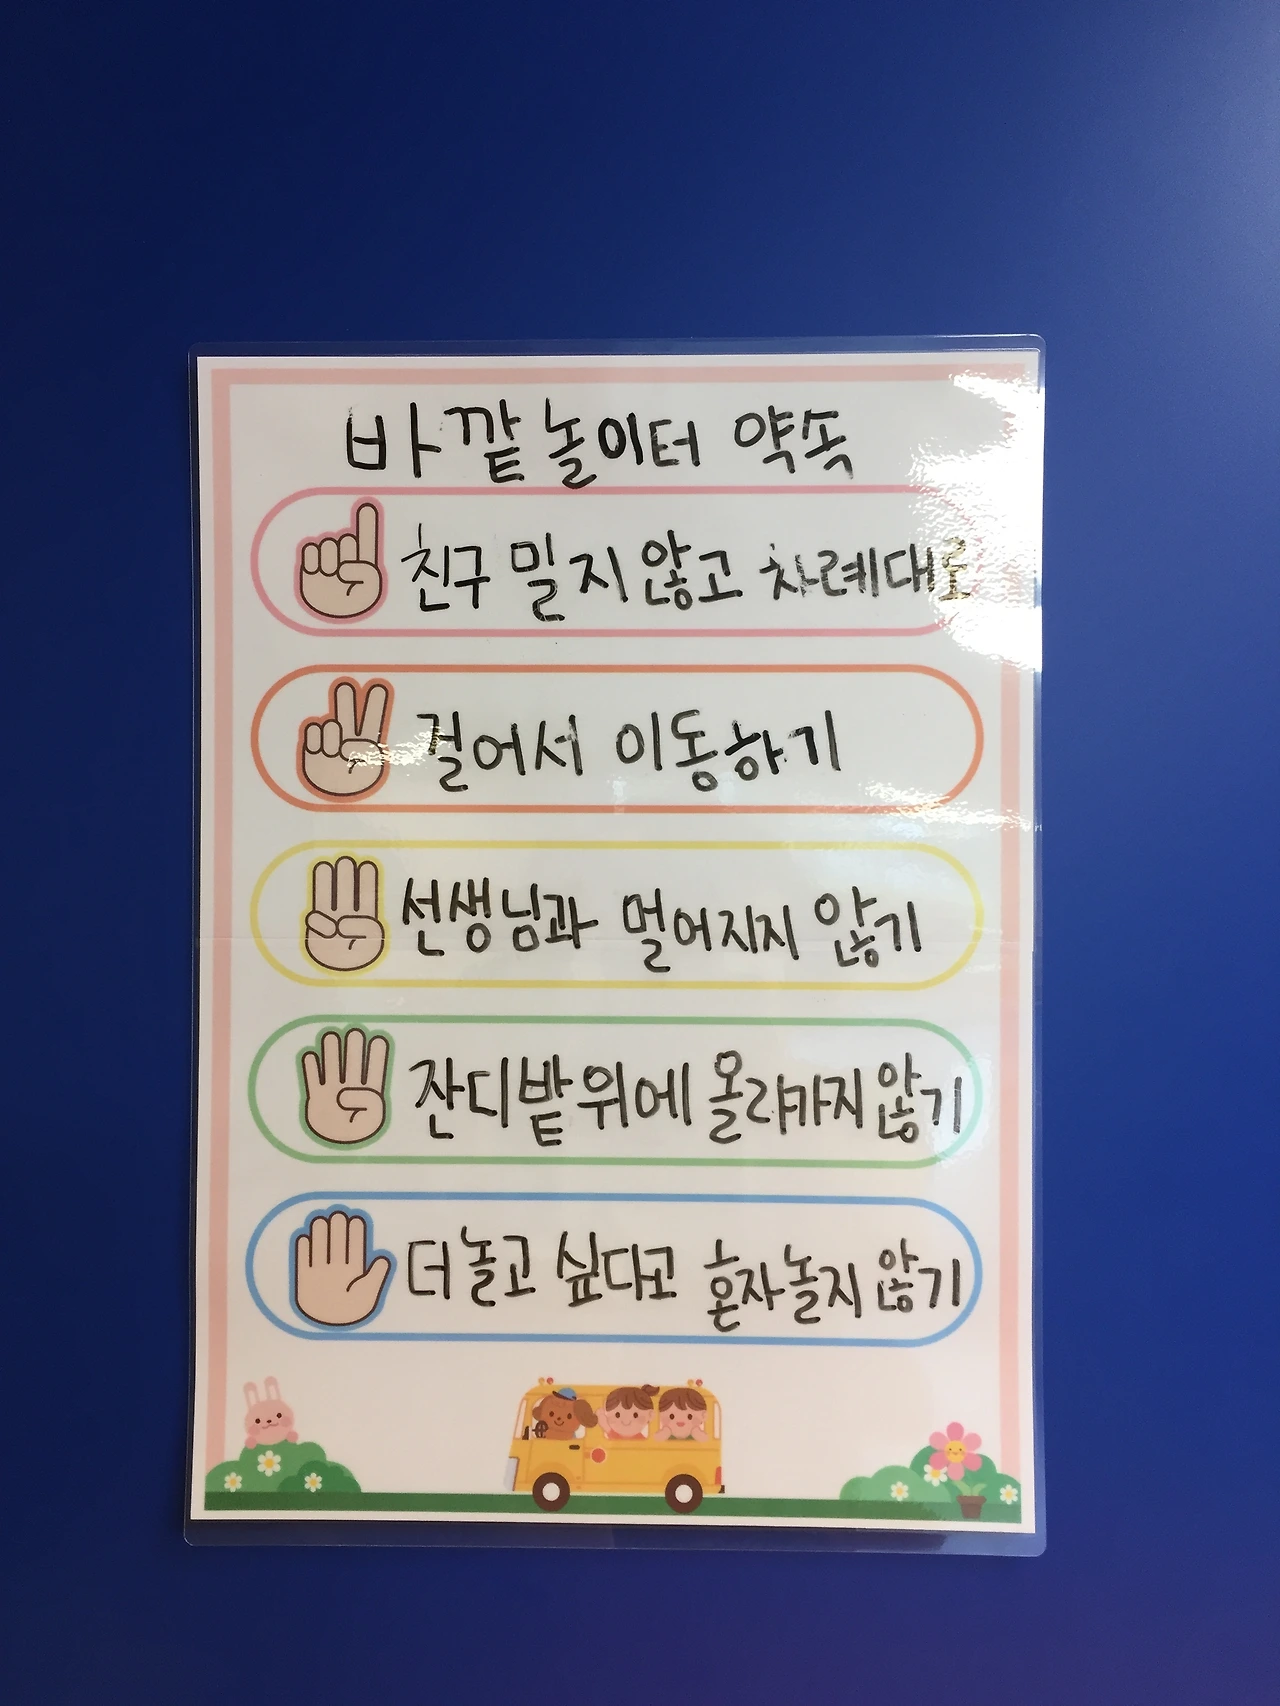 바깥 놀이터 약속
친구 밀지 않고 차례대로
걸어서 이동하기
선생님과 멀어지지 않기
잔디밭 위에 올라가지 않기
더 놀고 싶다고 혼자 놀지 않기